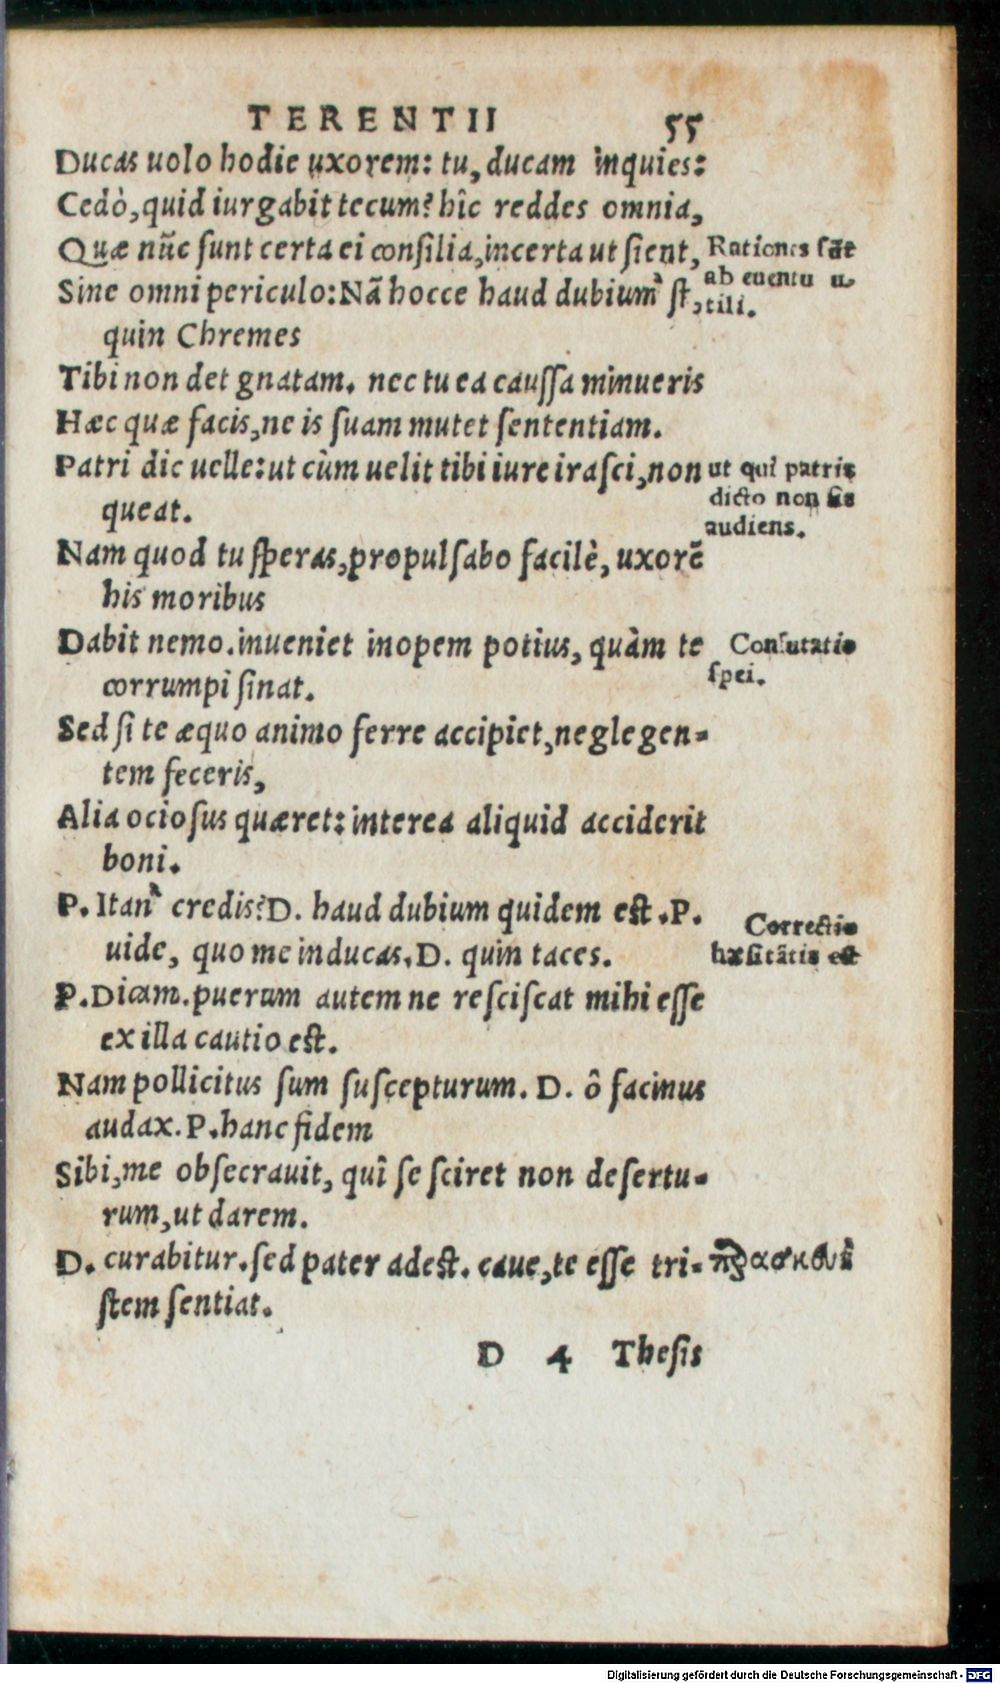 TERENTII 55
Ducas uolo hodie uxorem: tu, ducam inquies:
Cedò, quid iurgabit tecum? hîc reddes omnia,
Quæ nũc sunt certa ei consilia, incerta ut sient,
Rationes sũt
ab euentu u-
tili.
Sine omni periculo: Nã hocce haud dubium' st,
quin Chremes
Tibi non det gnatam. nec tu ea caussa minueris
Hæc quæ facis, ne is suam mutet sententiam.
Patri dic uelle: ut cùm uelit tibi iure irasci, non
queat.
ut qui patris
dicto non sis
audiens.
Nam quod tu speras, propulsabo facilè, uxorẽ
his moribus
Dabit nemo. inueniet inopem potius, quàm te
corrumpi sinat.
Confutatio
spei.
Sed si te æquo animo ferre accipiet, neglegen-
tem feceris,
Alia ociosus quæret: interea aliquid acciderit
boni.
P. Itan' credis? D. haud dubium quidem est. P.
uide, quo me inducas. D. quin taces.
Correctio
hæsitãtis est
P. Dicam. puerum autem ne resciscat mihi esse
ex illa cautio est.
Nam pollicitus sum suscepturum. D. ô facinus
audax. P. hanc fidem
Sibi, me obsecrauit, quî se sciret non desertu-
rum, ut darem.
D. curabitur. sed pater adest. caue, te esse tri-
stem sentiat.
D 4 Thesis
Digitalisierung gefördert durch die Deutsche Forschungsgemeinschaft - DFG